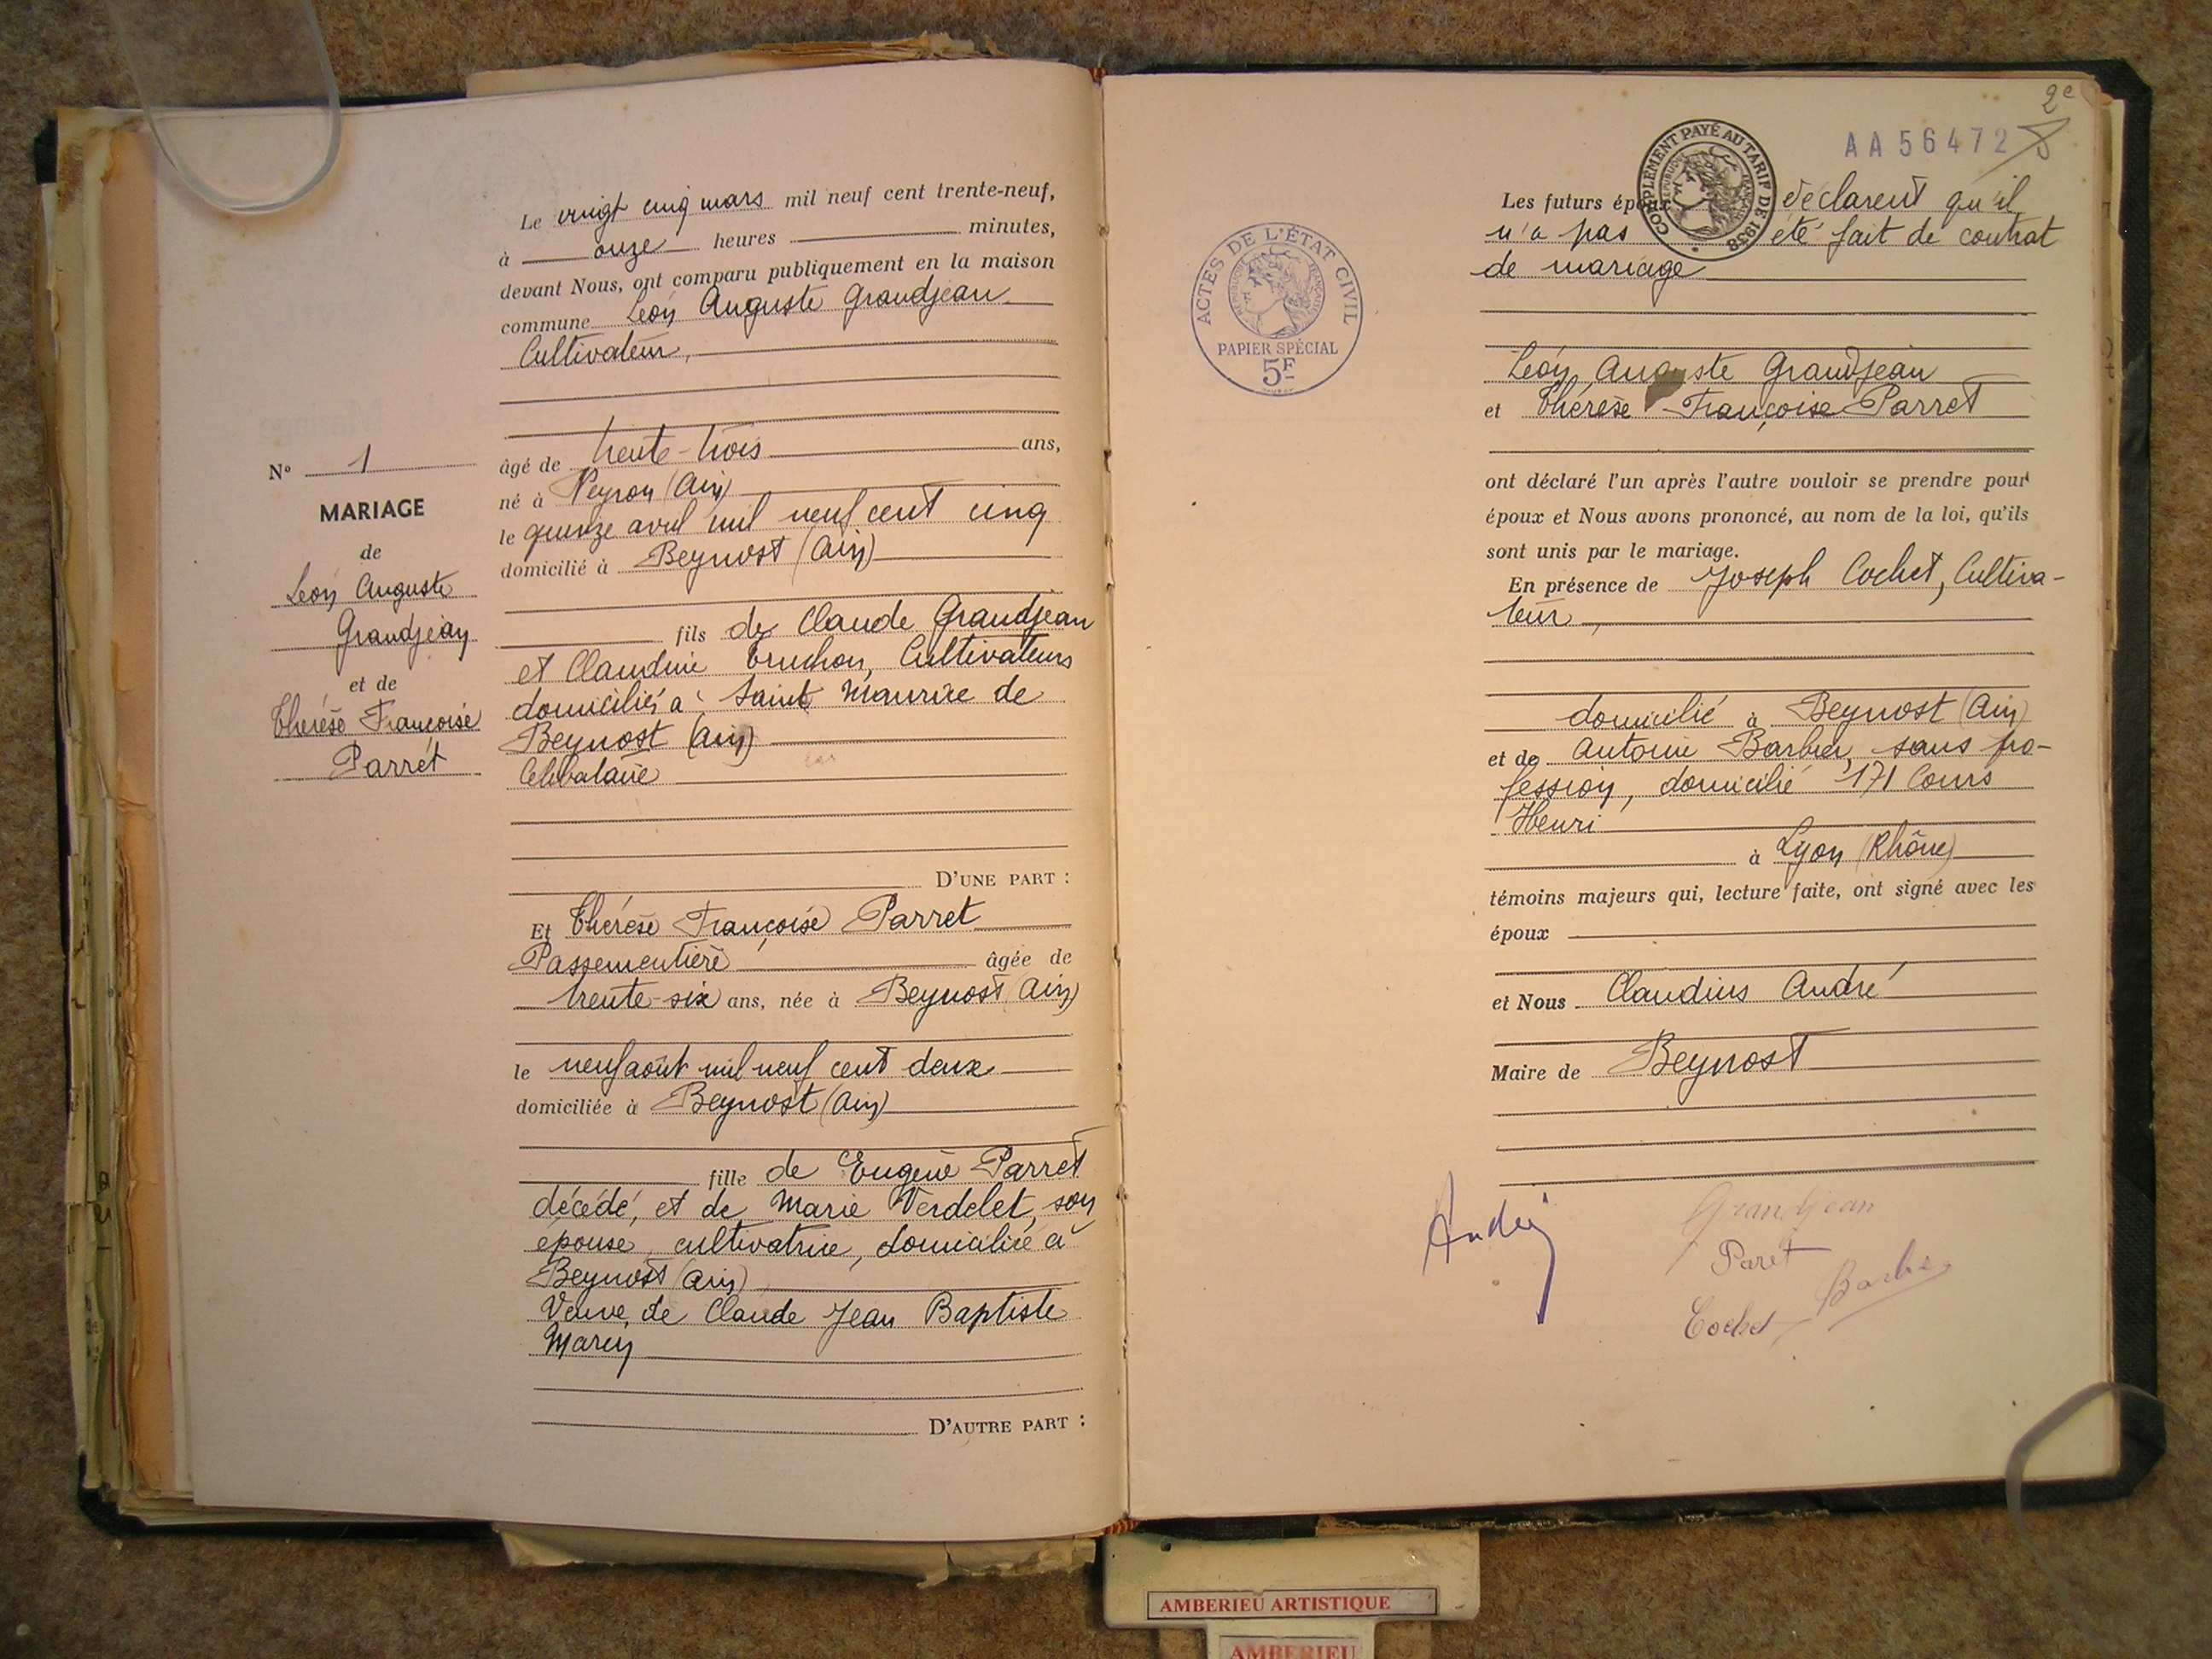 N° 1
MARIAGE
de
Léon Auguste
Grandjean
et de
Thérèse Françoise
Parret
Le vingt cinq mars mil neuf cent trente-neuf,
à onze heures minutes,
devant Nous, ont comparu publiquement en la maison
commune Léon Auguste Grandjean
Cultivateur,
âgé de trente-trois ans,
né à Neyron (Ain)
le quinze avril mil neuf cent cinq
domicilié à Beynost (Ain)
fils de Claude Grandjean
et Claudine Truchon, Cultivateurs
domiciliés à Saint Maurice de
Beynost (Ain)
Célibataire
D'UNE PART :
Et Thérèse Françoise Parret
Passementière âgée de
trente-six ans, née à Beynost (Ain)
le neuf août mil neuf cent deux
domiciliée à Beynost (Ain)
fille de Eugène Parret
décédé, et de Marie Verdelet, son
épouse, cultivatrice, domiciliée à
Beynost (Ain)
Veuve de Claude Jean Baptiste
D'AUTRE PART :
ACTES DE L'ÉTAT CIVIL
RÉPUBLIQUE FRANÇAISE
PAPIER SPÉCIAL
5F
2e
AA56472
COMPLÉMENT PAYÉ AU TARIF DE 1938
Les futurs époux déclarent qu'il
n'a pas été fait de contrat
de mariage
Léon Auguste Grandjean
et Thérèse Françoise Parret
ont déclaré l'un après l'autre vouloir se prendre pour
époux et Nous avons prononcé, au nom de la loi, qu'ils
sont unis par le mariage.
En présence de Joseph Cochet, Cultiva-
teur,
domicilié à Beynost (Ain)
et de Antoine Barbier, sans pro-
fession, domicilié 171 Cours
Henri
à Lyon (Rhône)
témoins majeurs qui, lecture faite, ont signé avec les
époux
et Nous Claudius André
Maire de Beynost
André
Grandjean
Paret
Barbier
Cochet
AMBERIEU ARTISTIQUE
AMBERIEU